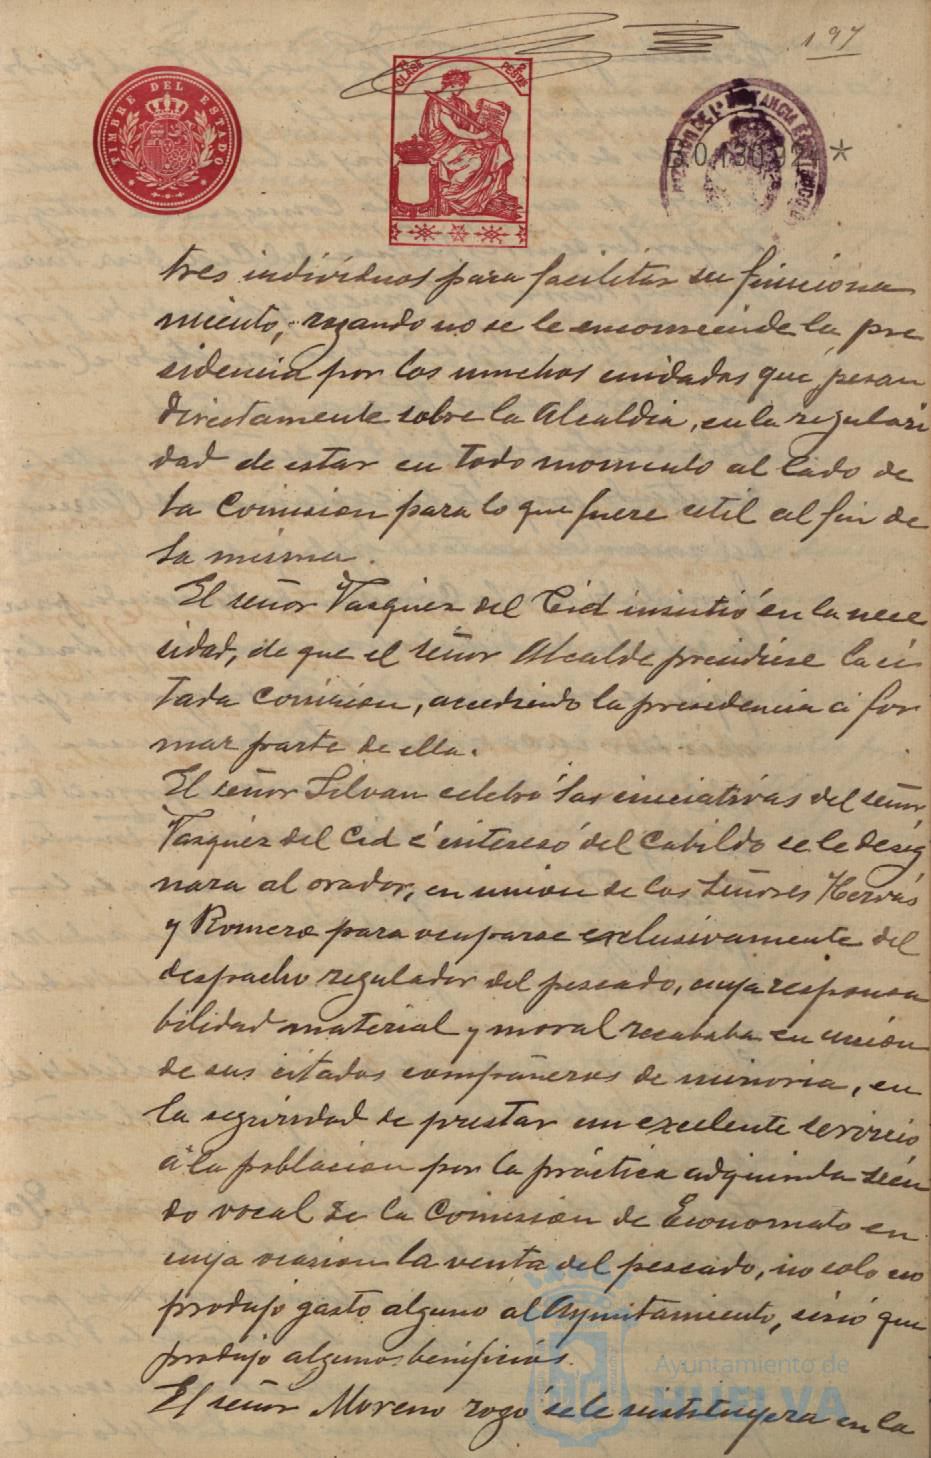 197
TIMBRE DEL ESTADO
CLASE
2 PESETAS
JUZGADO DE 1ª INSTANCIA
tres individuos para facilitar su funciona
miento, rogando no se le encomiende la pre
sidencia por los muchos cuidados que pesan
directamente sobre la Alcaldia, en la regulari
dad de estar en todo momento al lado de
la Comision para lo que fuere util al fin de
la misma.
El señor Vazquez del Cid insistió en la nece
sidad, de que el señor Alcalde presidiese la ci
tada Comision, accediendo la presidencia á for
mar parte de ella.
El señor Silvan celebró las iniciativas del señor
Vazquez del Cid é interesó del Cabildo se le desig
nara al orador, en union de los señores Hervás
y Romero para ocuparse exclusivamente del
despacho regulador del pescado, cuya responsa
bilidad material y moral recababa en unión
de sus citados compañeros de minoria, en
la seguridad de prestar un excelente servicio
á la poblacion por la práctica adquirida sien
do vocal de la Comision de Economato en
cuya ocasion la venta del pescado, no solo no
produjo gasto alguno al Ayuntamiento, sinó que
produjo algunos beneficios.
El señor Moreno rogó se le sustituyera en la
Ayuntamiento de
HUELVA